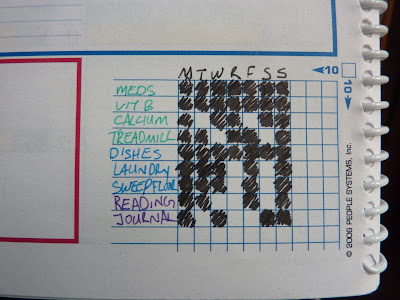 M T W R F S S
◄10
10
MEDS
VIT B
CALCIUM
TREADMILL
DISHES
LAUNDRY
SWEEPFLOOR
READING
JOURNAL
© 2006 PEOPLE SYSTEMS, Inc.